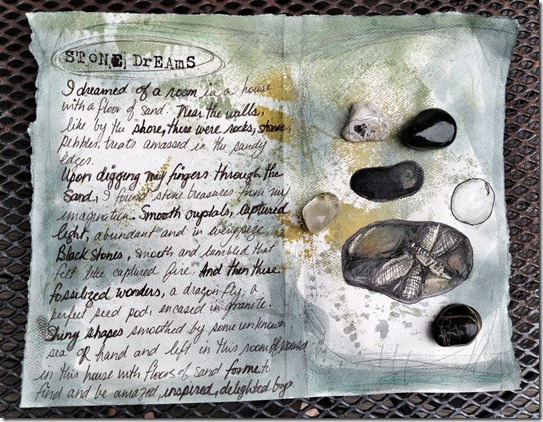 STONE DrEAmS
I dreamed of a room in a house
with a floor of sand. Near the walls,
like by the shore, there were rocks, stones,
pebbles, treats amassed in the sandy
edges.
Upon digging my fingers through the
sand, I found stone treasures from my
imagination. Smooth crystals, captured
light, abundant and in every size.
Black stones, smooth and tumbled that
felt like captured fire. And then these
fossilized wonders, a dragon fly, a
perfect seed pod, encased in granite.
Shing shapes smoothed by some unknown
sea or hand and left in this room
in this house with floors of sand for me to
find and be amazed, inspired, delighted by